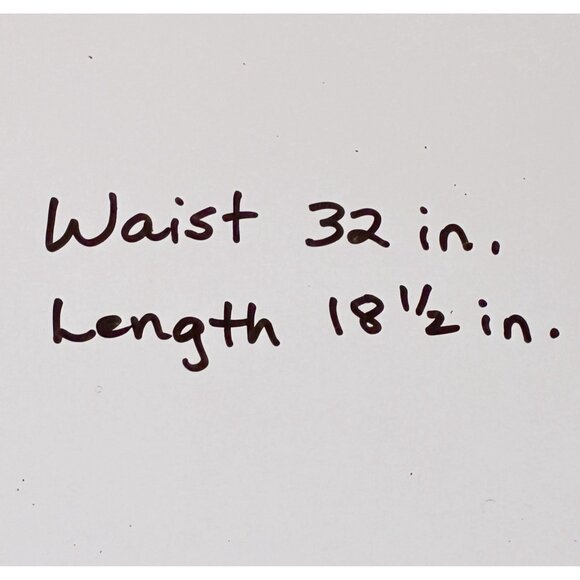 Waist 32 in.
Length 18 1/2 in.